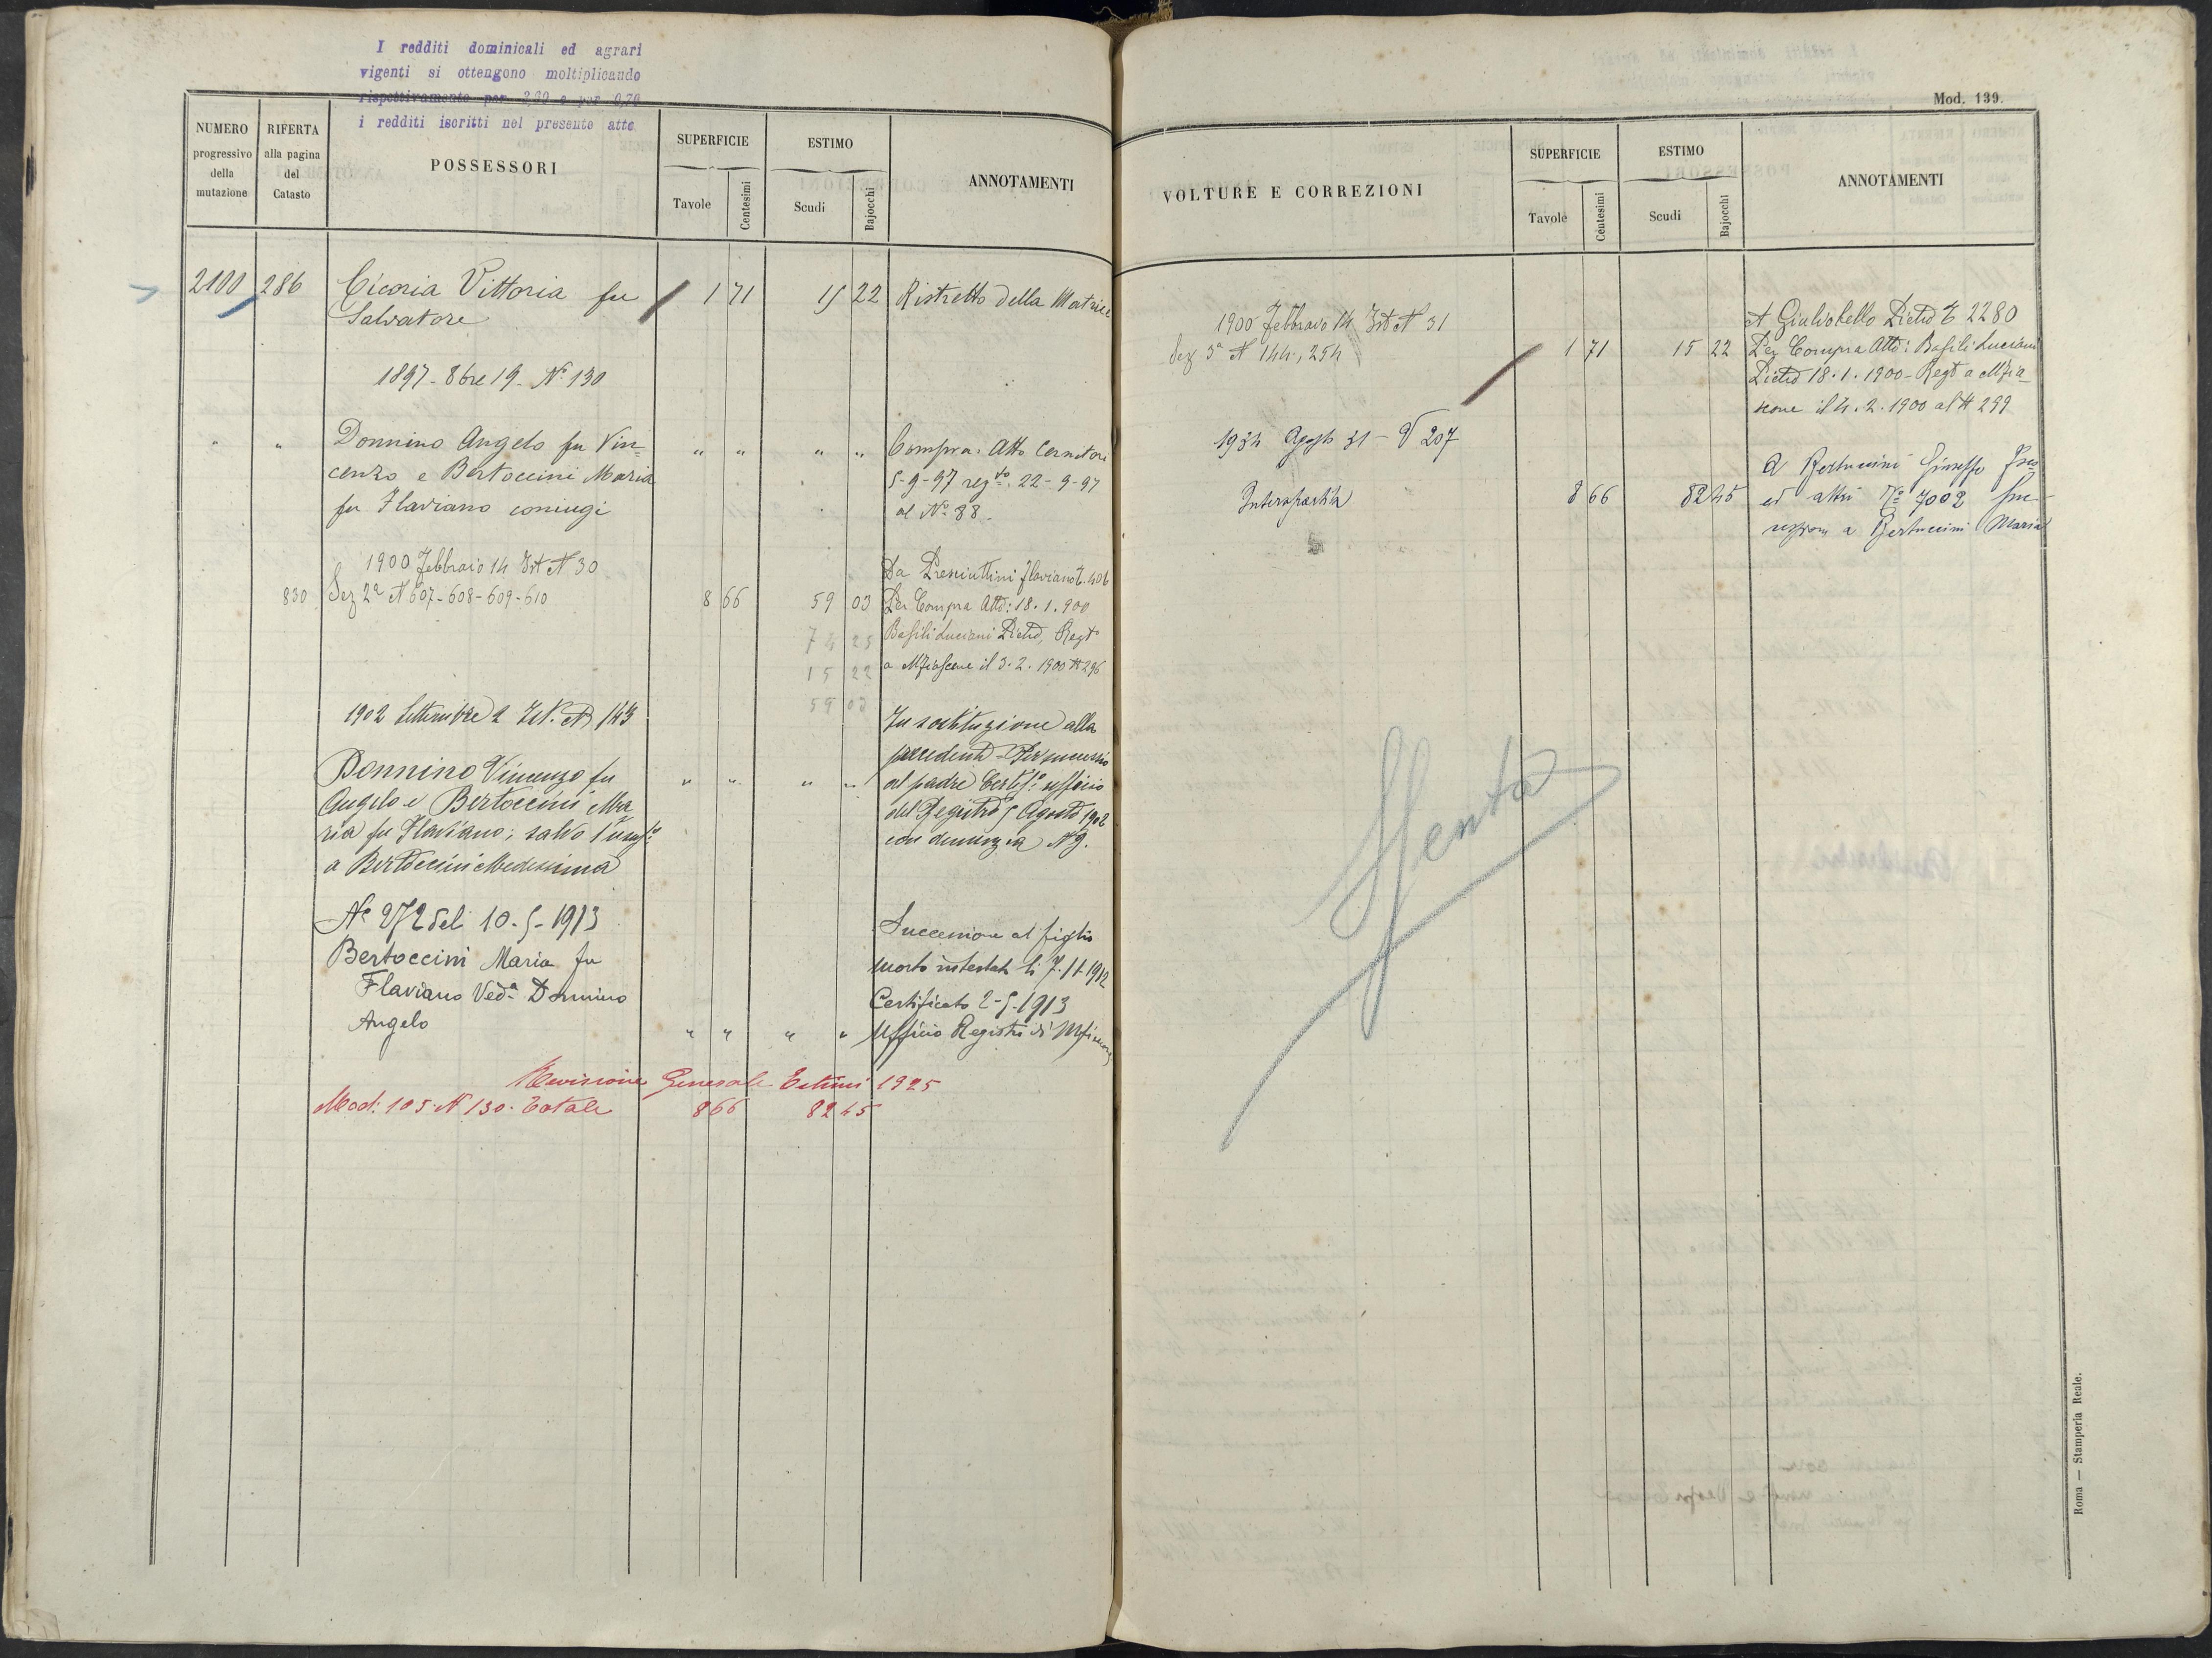 I redditi dominicali ed agrari
vigenti si ottengono moltiplicando
rispettivamente per 2,30 e per 0,70
i redditi iscritti nel presente atto
NUMERO progressivo della mutazione
RIFERTA alla pagina del Catasto
POSSESSORI
SUPERFICIE
Tavole
Centesimi
ESTIMO
Scudi
Bajocchi
ANNOTAMENTI
2100 286 Cicoria Vittoria fu 1 71 15 22 Ristretto della Matrice
Salvatore
1897 - 8bre 19 - Nº 130
" " Donnino Angelo fu Vin= " " " " Compra: Atto Cernitori
cenzo e Bertoccini Maria 5-9-97 reg.to 22-9-97
fu Flaviano coniugi al Nº 88.
1900 Febbraio 14 Ist N 30 Da Presciuttini Flaviano T. 406
830 Sez 2ª N 607-608-609-610 8 66 59 03 Per Compra Atto: 18.1.900
74 25 Basili Luciani Pietro, Regt
15 22 a Mfiascone il 3.2.1900 N 296
59 03
1902 Settembre 2 Ist. N 143 In sostituzione alla
precedente - Per successio
Donnino Vincenzo fu " " " " al padre Certif.º ufficio
Angelo e Bertoccini Ma del Registro 5 Agosto 1902
ria fu Flaviano; salvo l'usuf.º con denunzia Nº 9.
a Bertoccini Medesima
Nº 272 del 10-5-1913 Successione al figlio
Bertoccini Maria fu morto intestato li 7.11.1912
Flaviano Ved.ª Donnino Certificato 2-5-1913
Angelo " " " " Ufficio Registro di Mfiascone
Revisione Generale Estimi 1925
Mod: 105 N 130. Totale 8 66 82 45
Mod. 139.
VOLTURE E CORREZIONI
SUPERFICIE
Tavole
Centesimi
ESTIMO
Scudi
Bajocchi
ANNOTAMENTI
1900 Febbraio 14 Ist N 31 A Giulivobello Pietro T 2280
Sez 3ª N 144, 254 1 71 15 22 Per Compra Atto: Basili Luciani
Pietro 18.1.1900 - Regt a Mfia=
scone il 4.2.1900 al N 299
1934 Agosto 31 - V 207
A Bertuccini Giuseppe
Intera partita 8 66 82 45 ed altri Nº 7002 Suc=
cessione a Bertuccini Maria
Spenta
Roma — Stamperia Reale.